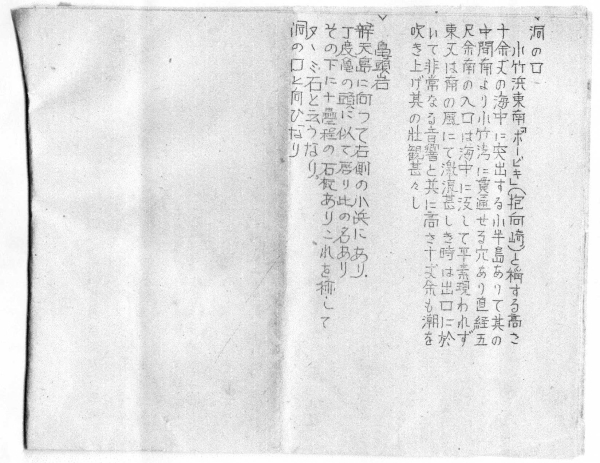 洞の口
小竹浜東南「ホービキ」(抱向崎)と稱する高さ
十余丈の海中に突出する小半島ありて其の
中間南より小竹湾に貫通せる穴あり直経五
尺余南の入口は海中に没して平素現われず
東又は南の風にて激浪甚しき時は出口に於
いて非常なる音響と共に高さ十丈余も潮を
吹き上げ其の壯観甚々し
亀頭岩
辨天島に向つて右側の小浜にあり.
丁度亀の頭に似て居り此の名あり
その下に十疊程の石板ありこれを稱して
タヽミ石と云うなり.
洞の口と向ひなり